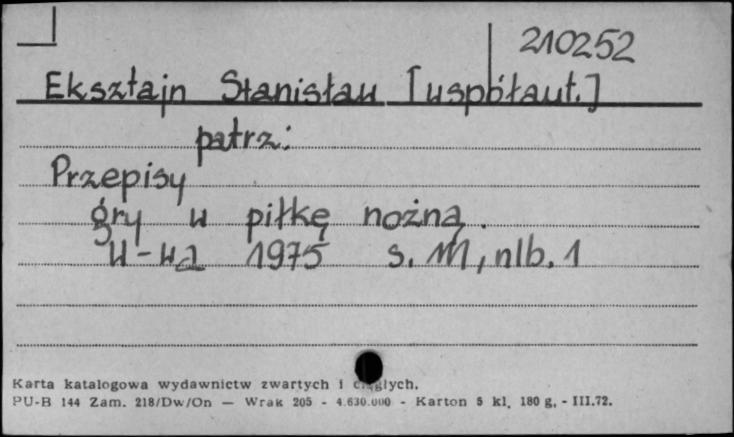 210252
Eksztajn Stanisław [współaut.]
patrz:
Przepisy
gry w piłkę nożną.
W-wa 1975 s. 111, nlb. 1
Karta katalogowa wydawnictw zwartych i ciągłych.
PU-B 144 Zam. 218/Dw/On — Wrak 205 - 4.630.000 - Karton 5 kl. 180 g. - III.72.